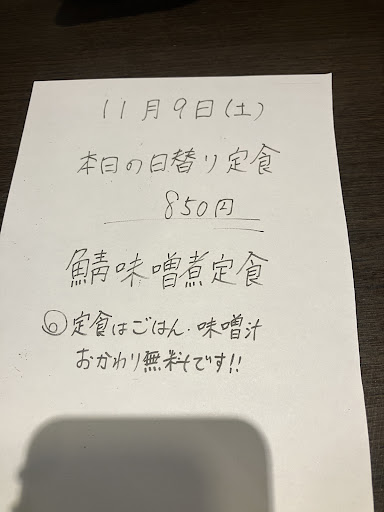 11月9日(土)
本日の日替り定食
850円
鯖味噌煮定食
◎定食はごはん・味噌汁
おかわり無料です!!